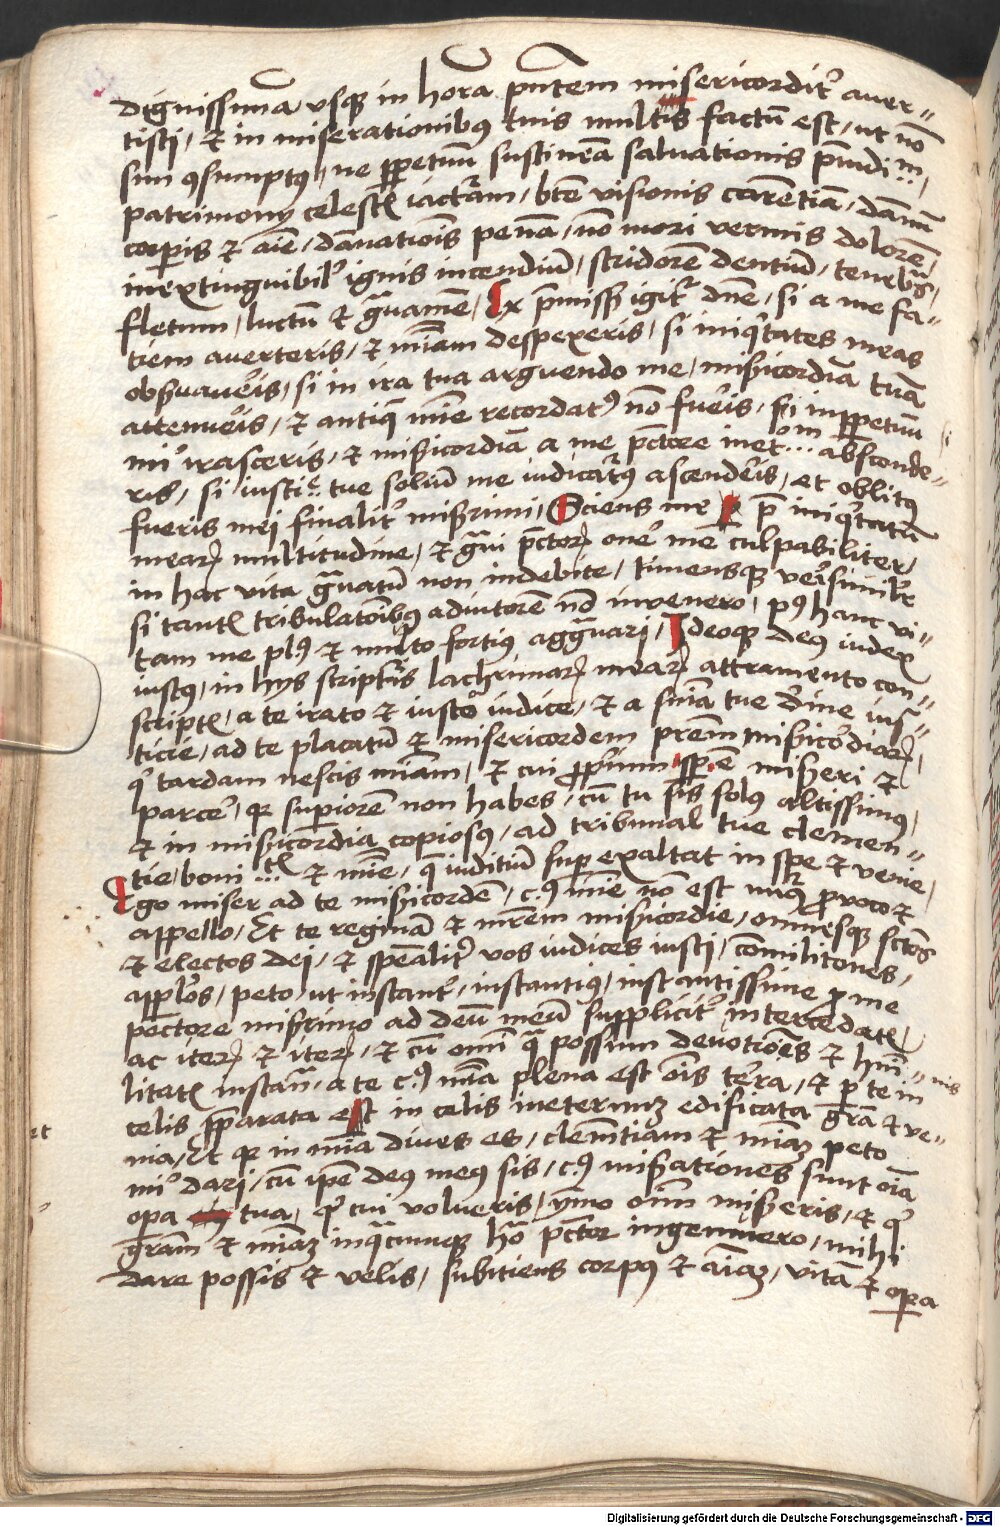 dignissima vsq3 in hora pñtem misericordit' auer-
tisti / et in miserationibus tuis multis factũ est / ut nõ
sim ꝯsumptus / ne ppetuũ sustineã saluationis
patrimonij celestis iacturam / btẽ visionis carẽtiam / damnũ
corpis et aĩe / dãnationis penã / nõ mori vermis dolorẽ /
inextinguibil' ignis incendiũ / stridorẽ dentiũ / tenebras /
fletum / luctũ et grauamẽ / Ex pmissis igit' dñe / si a me fa-
tiem auerteris / et miãm despexeris / si iniqtates meas
obseruaueris / si in ira tua arguendo me / misericordiã tuã
attenueris / et antique mie recordatus nõ fueris / in ppetuũ
mi' irasceris / et misericordiã a me pctore absconde-
ris / si iustitie tue soliũ me iudicaturus ascenderis / et oblitus
fueris mei finalit' miserrimi / Sciens me p iniqtatũ
mearum multitudine / et graui pctorum one' me culpabiliter
in hac vita grauatũ non indebite / timensq3 verisimilr
si tantis tribulatõibus adiutorẽ nõ inuenero / post hanc vi-
tam me plus et multo fortius aggrauari / Ideoq3 deus iudex
iustus / in hys scriptis lachrimarum mearum attramento con-
scriptis / a te irato et iusto iudice / et a snia tue diuine ius-
ticie / ad te placatũ et misericordem prem misericordiarum
q' tardam nescis miãm / et cui ppriũ est misereri et
parcere / qr supiorẽ non habes / cũ tu sis solus altissimus /
et in misericordia copiosus / ad tribunal tue clemen-
tie / bonitatis et mie / q iuditiũ supexaltat in spe et venie /
Ego miser ad te misericordẽ / cuius mie nõ est nũs puoco et
appello / Et te reginã et mrẽm misericordie / omnesq3 sctõs
et electos dei / et spealit' vos iudices iusti / cõmilitones /
applos / peto / ut instant' / instantius / instantissime p me
pctore miserrimo ad deũ meũ supplicit' intercedatis
ac iterum et iterum / et cũ omi qua possum deuotiões et humi-
litatis instan / a te cuius mia plena est ois terra / et p te in
celis pparata est in celis ineternum edificata gra et ve-
nia / Et qr in mia diues es / clemẽtiam et miam peto
mi' dari / cũ ipe deus meus sis / cuius miserationes sunt oĩa
opa tua / q' cui volueris / ymo oim misereris / et q'
gram et miam inqcumq3 hora pctor ingemuero / mihi
dare possis et velis / subitiens corpus et aiam / vitã et opera
et